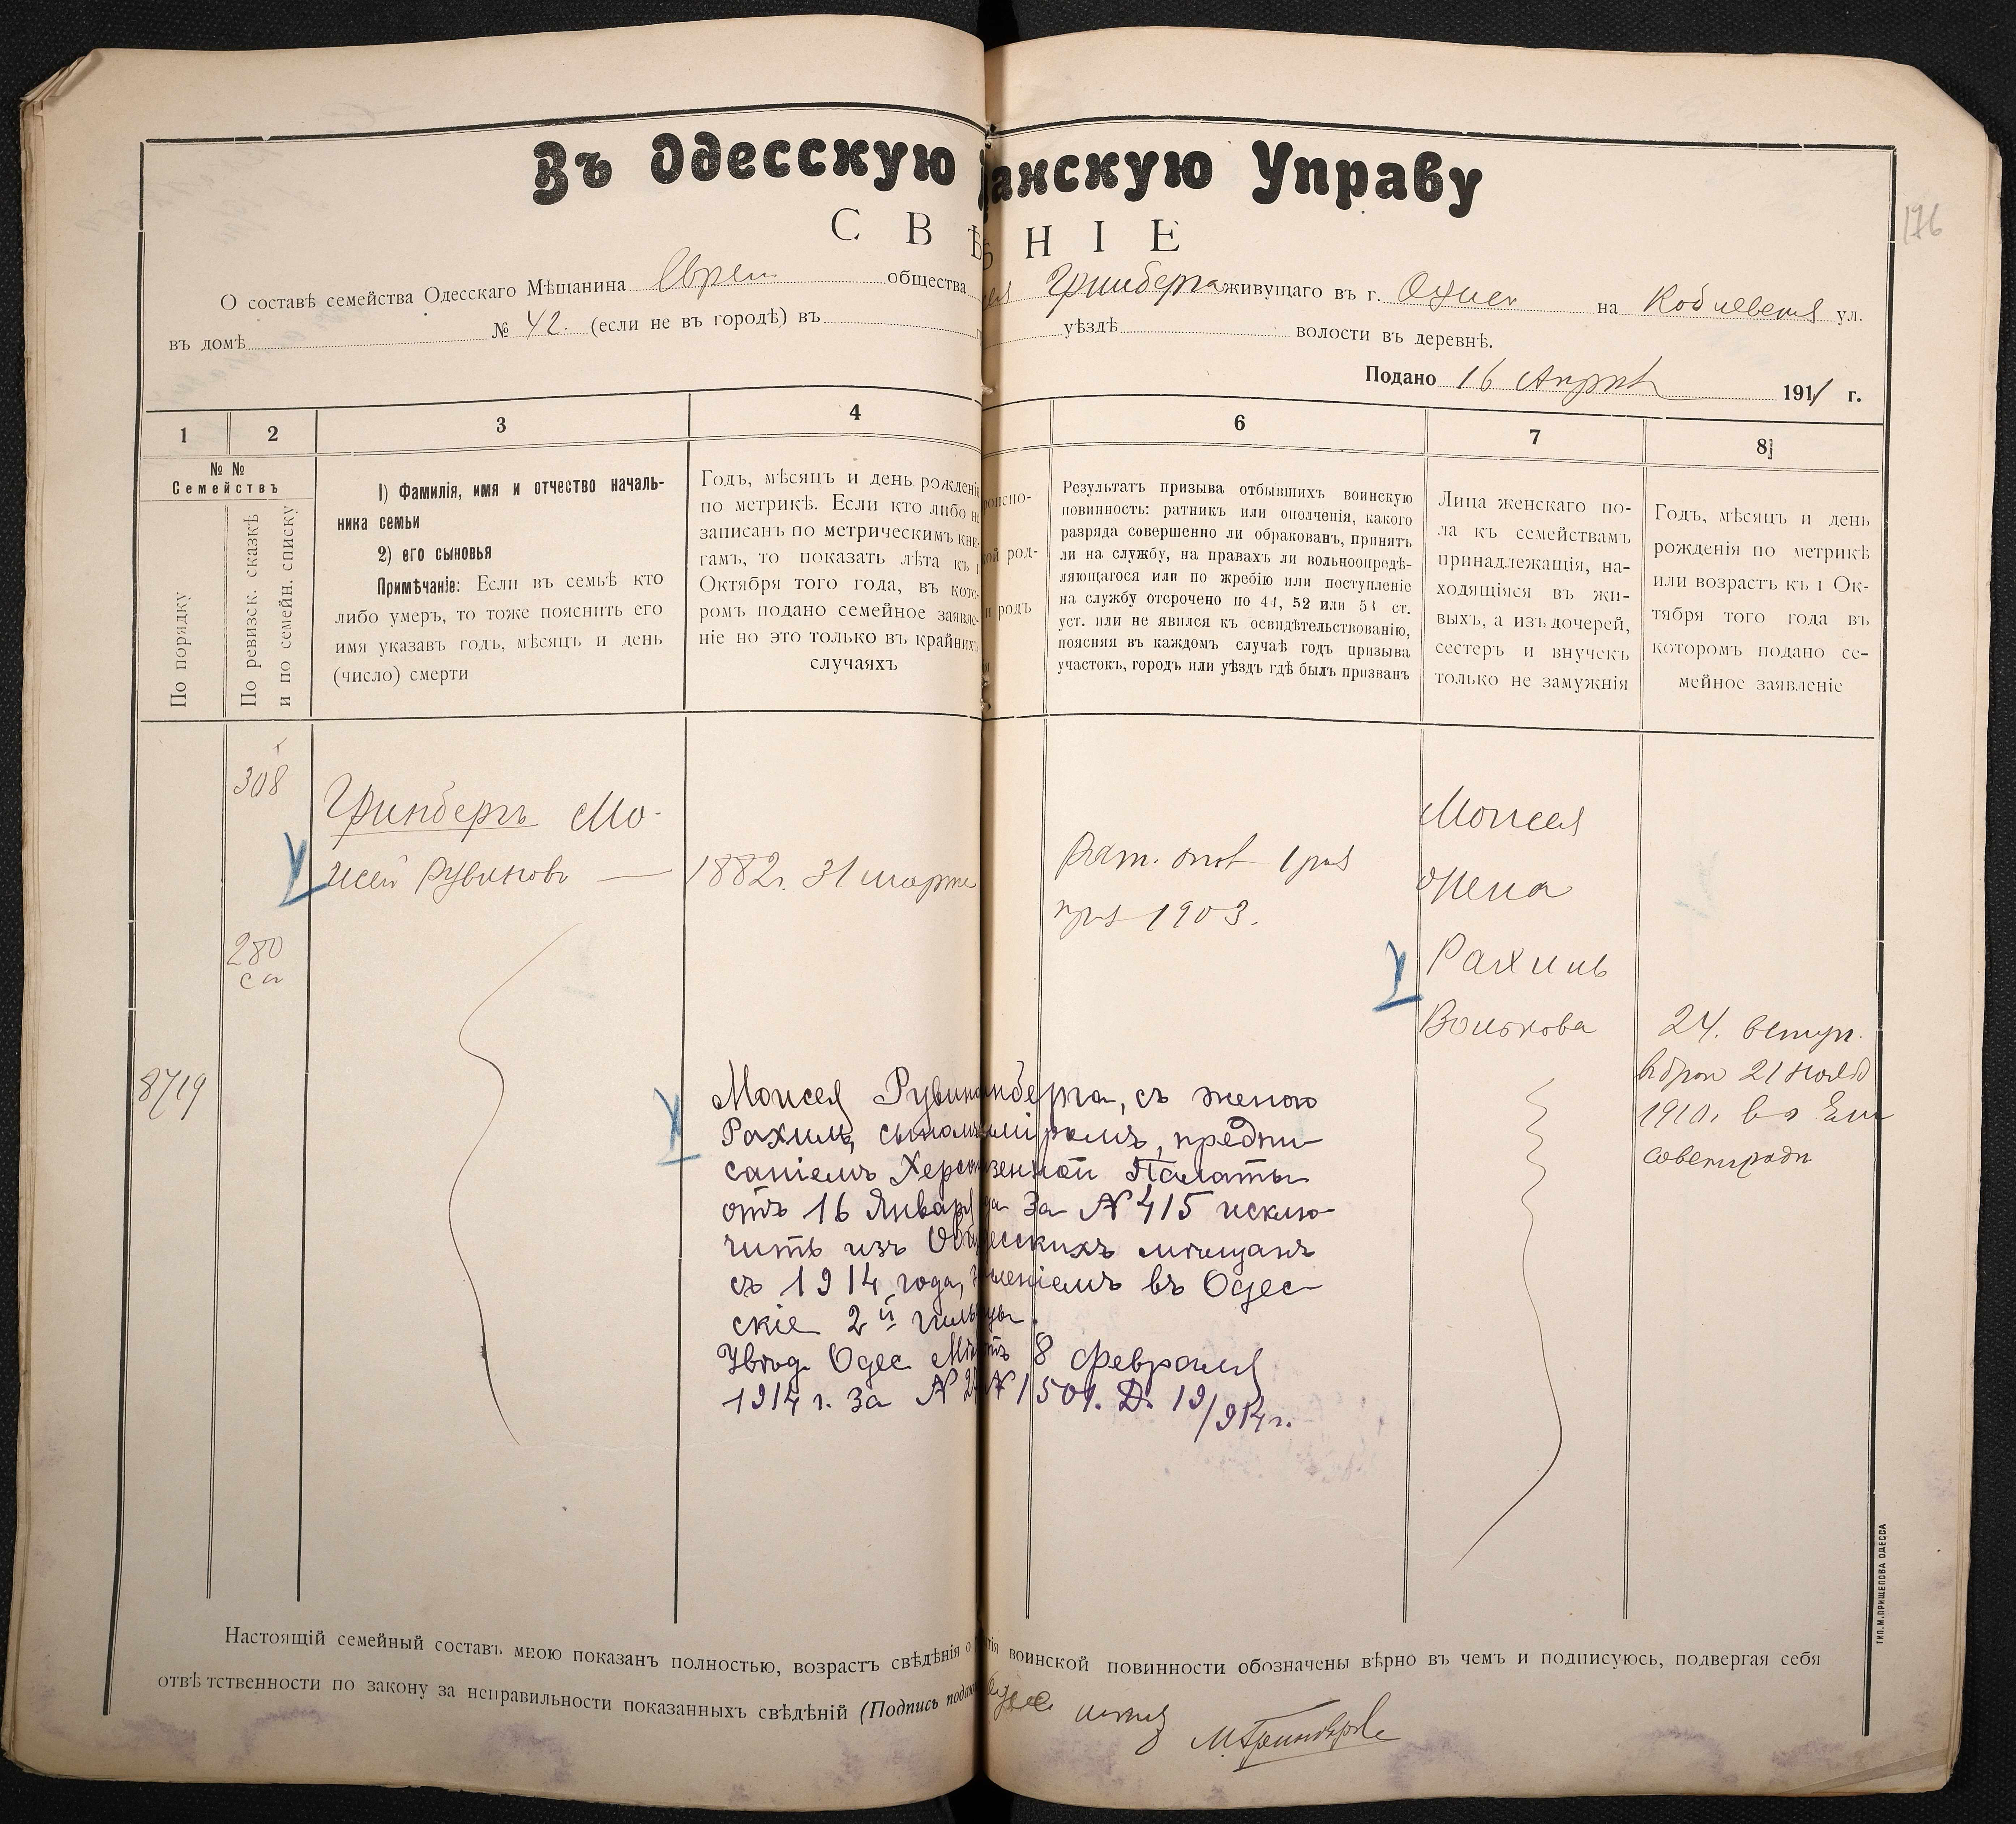 Въ Одесскую анскую Управу
176
С В Ѣ Н І Е
О составѣ семейства Одесскаго Мѣщанина Еврея общества Гринберга живущаго въ г. Одессѣ на Коблевской ул.
въ домѣ № 42. (если не въ городѣ) въ уѣздѣ волости въ деревнѣ.
Подано 16 Апрѣля 1911 г.
1
2
3
4
6
7
8
№ №
Семействъ
По порядку
По ревизск. сказкѣ
и по семейн. списку
1) Фамилія, имя и отчество началь-
ника семьи
2) его сыновья
Примѣчаніе: Если въ семьѣ кто
либо умеръ, то тоже пояснить его
имя указавъ годъ, мѣсяцъ и день
(число) смерти
Годъ, мѣсяцъ и день рожденія
по метрикѣ. Если кто либо не
записанъ по метрическимъ кни-
гамъ, то показать лѣта къ 1
Октября того года, въ кото-
ромъ подано семейное заявле-
ніе но это только въ крайнихъ
случаяхъ
роиспо-
кой род-
и родъ
Результатъ призыва отбывшихъ воинскую
повинность: ратникъ или ополченія, какого
разряда совершенно ли обракованъ, принятъ
ли на службу, на правахъ ли вольноопредѣ-
ляющагося или по жребію или поступленіе
на службу отсрочено по 44, 52 или 53 ст.
уст. или не явился къ освидѣтельствованію,
поясняя въ каждомъ случаѣ годъ призыва
участокъ, городъ или уѣздъ гдѣ былъ призванъ
Лица женскаго по-
ла къ семействамъ
принадлежащія, на-
ходящіяся въ жи-
выхъ, а изъ дочерей,
сестеръ и внучекъ
только не замужнія
Годъ, мѣсяцъ и день
рожденія по метрикѣ
или возрастъ къ 1 Ок-
тября того года въ
которомъ подано се-
мейное заявленіе
308
280
8719
Гринбергъ Мо-
исей Рувиновъ
1882 г. 31 марта
Рат. опол 1 раз
приз 1903.
Моисея
жена
Рахиль
Волькова
24. вступ.
в брак 21 нояб
1910 г.
Моисея Рувин нберга, съ женою
Рахиль, сыномъ предпи-
саніемъ Херсо зенной Палаты
отъ 16 Января за № 415 исклю-
чить изъ Од есскихъ мѣщанъ
съ 1914 года, леніемъ въ Одес-
скіе 2й гильд
Увѣд. Одес. Мѣ отъ 8 февраля
1914 г. за № 2 № 1501. Д. 19/914 г.
Настоящій семейный составъ мною показанъ полностью, возрастъ свѣдѣнія о тія воинской повинности обозначены вѣрно въ чемъ и подписуюсь, подвергая себя
отвѣтственности по закону за неправильности показанныхъ свѣдѣній (Подпись подаю
М. Гринбергъ
ТИП. М. ПРИЩЕПОВА ОДЕССА